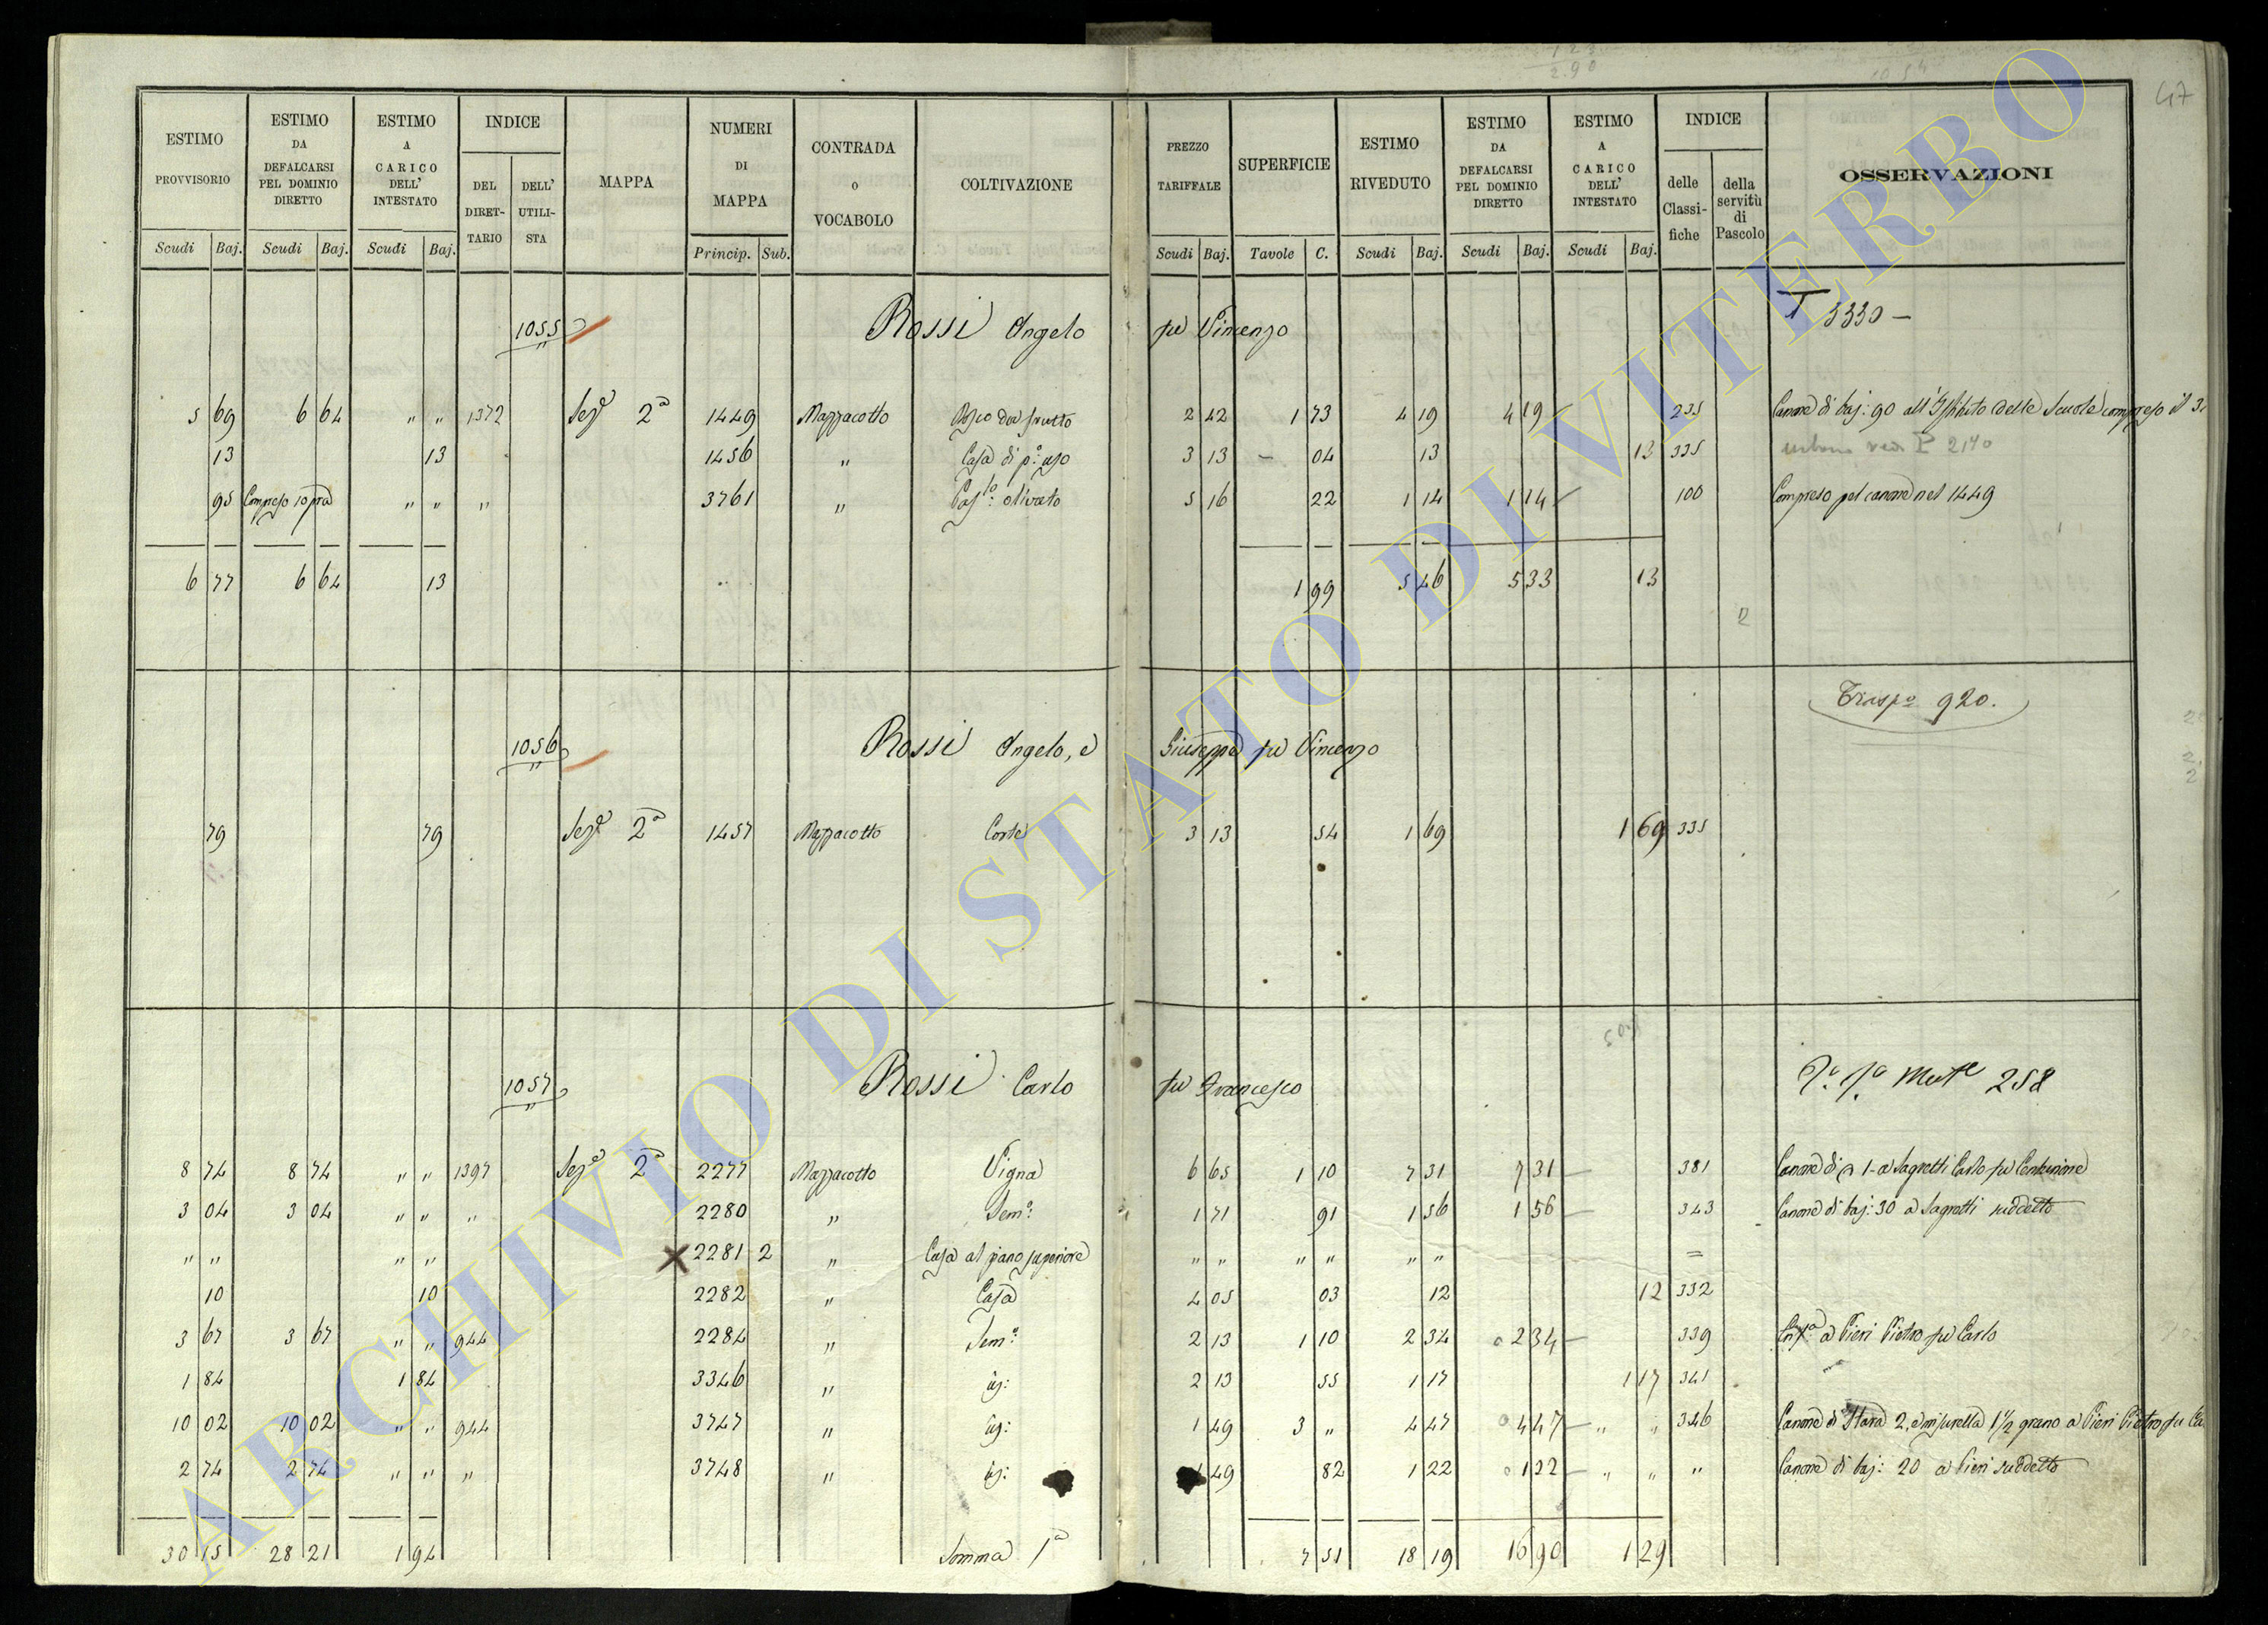 47
ESTIMO PROVVISORIO
Scudi Baj.
ESTIMO DA DEFALCARSI PEL DOMINIO DIRETTO
Scudi Baj.
ESTIMO A CARICO DELL' INTESTATO
Scudi Baj.
INDICE
DEL DIRET-TARIO
DELL' UTILI-STA
MAPPA
NUMERI DI MAPPA
Princip. Sub.
CONTRADA O VOCABOLO
COLTIVAZIONE
PREZZO TARIFFALE
Scudi Baj.
SUPERFICIE
Tavole C.
ESTIMO RIVEDUTO
Scudi Baj.
ESTIMO DA DEFALCARSI PEL DOMINIO DIRETTO
Scudi Baj.
ESTIMO A CARICO DELL' INTESTATO
Scudi Baj.
INDICE
delle Classi-fiche
della servitù di Pascolo
OSSERVAZIONI
1055 Rossi Angelo fu Vincenzo T 3330 —
5 69 6 64 " " 1372 Sez.e 2a 1449 Mazzacotto da frutto 2 42 1 73 4 19 4 19 235 Canone di baj: 90 all'Istituto delle Scuole compreso il
13 13 1456 " Casa di p.o uso 3 13 — 04 13 13 335 2140
95 Compreso sopra " " " 3761 " olivato 5 16 22 1 14 1 14 100 Compreso pel canone nel 1449
6 77 6 64 13 1 99 5 46 5 33 13
2
Trasp.o 920.
1056 Rossi Angelo, e Giuseppe fu Vincenzo
79 79 Sez.e 2a 1457 Mazzacotto Corte 3 13 54 1 69 1 69 335
1057 Rossi Carlo fu Francesco 258
8 74 8 74 " " 1397 Sez.e 2a 2277 Mazzacotto Vigna 6 65 1 10 7 31 7 31 381 Canone di 1- a Sagretti Carlo fu
3 04 3 04 " " " 2280 " Sem.o 1 71 91 1 56 1 56 343 Canone di baj: 30 a Sagretti suddetto
" " " " 2281 2 " Casa al piano superiore " " " " " " =
10 10 2282 " Casa 4 05 03 12 12 332
3 67 3 67 " " 944 2284 " Sem.o 2 13 1 10 2 34 2 34 339 a Pieri Pietro fu Carlo
1 84 1 84 3346 " 2 13 55 1 17 1 17 341
10 02 10 02 " " 944 3747 " 1 49 3 " 4 47 4 47 " " 346 Canone di Stara 2, e misurella 1 1/2 grano a Pieri Pietro fu Ca
2 74 2 74 " " " 3748 " 1 49 82 1 22 1 22 " " " Canone di baj: 20 a Pieri suddetto
30 15 28 21 1 94 Somma 1a 7 51 18 19 16 90 1 29
ARCHIVIO DI STATO DI VITERBO